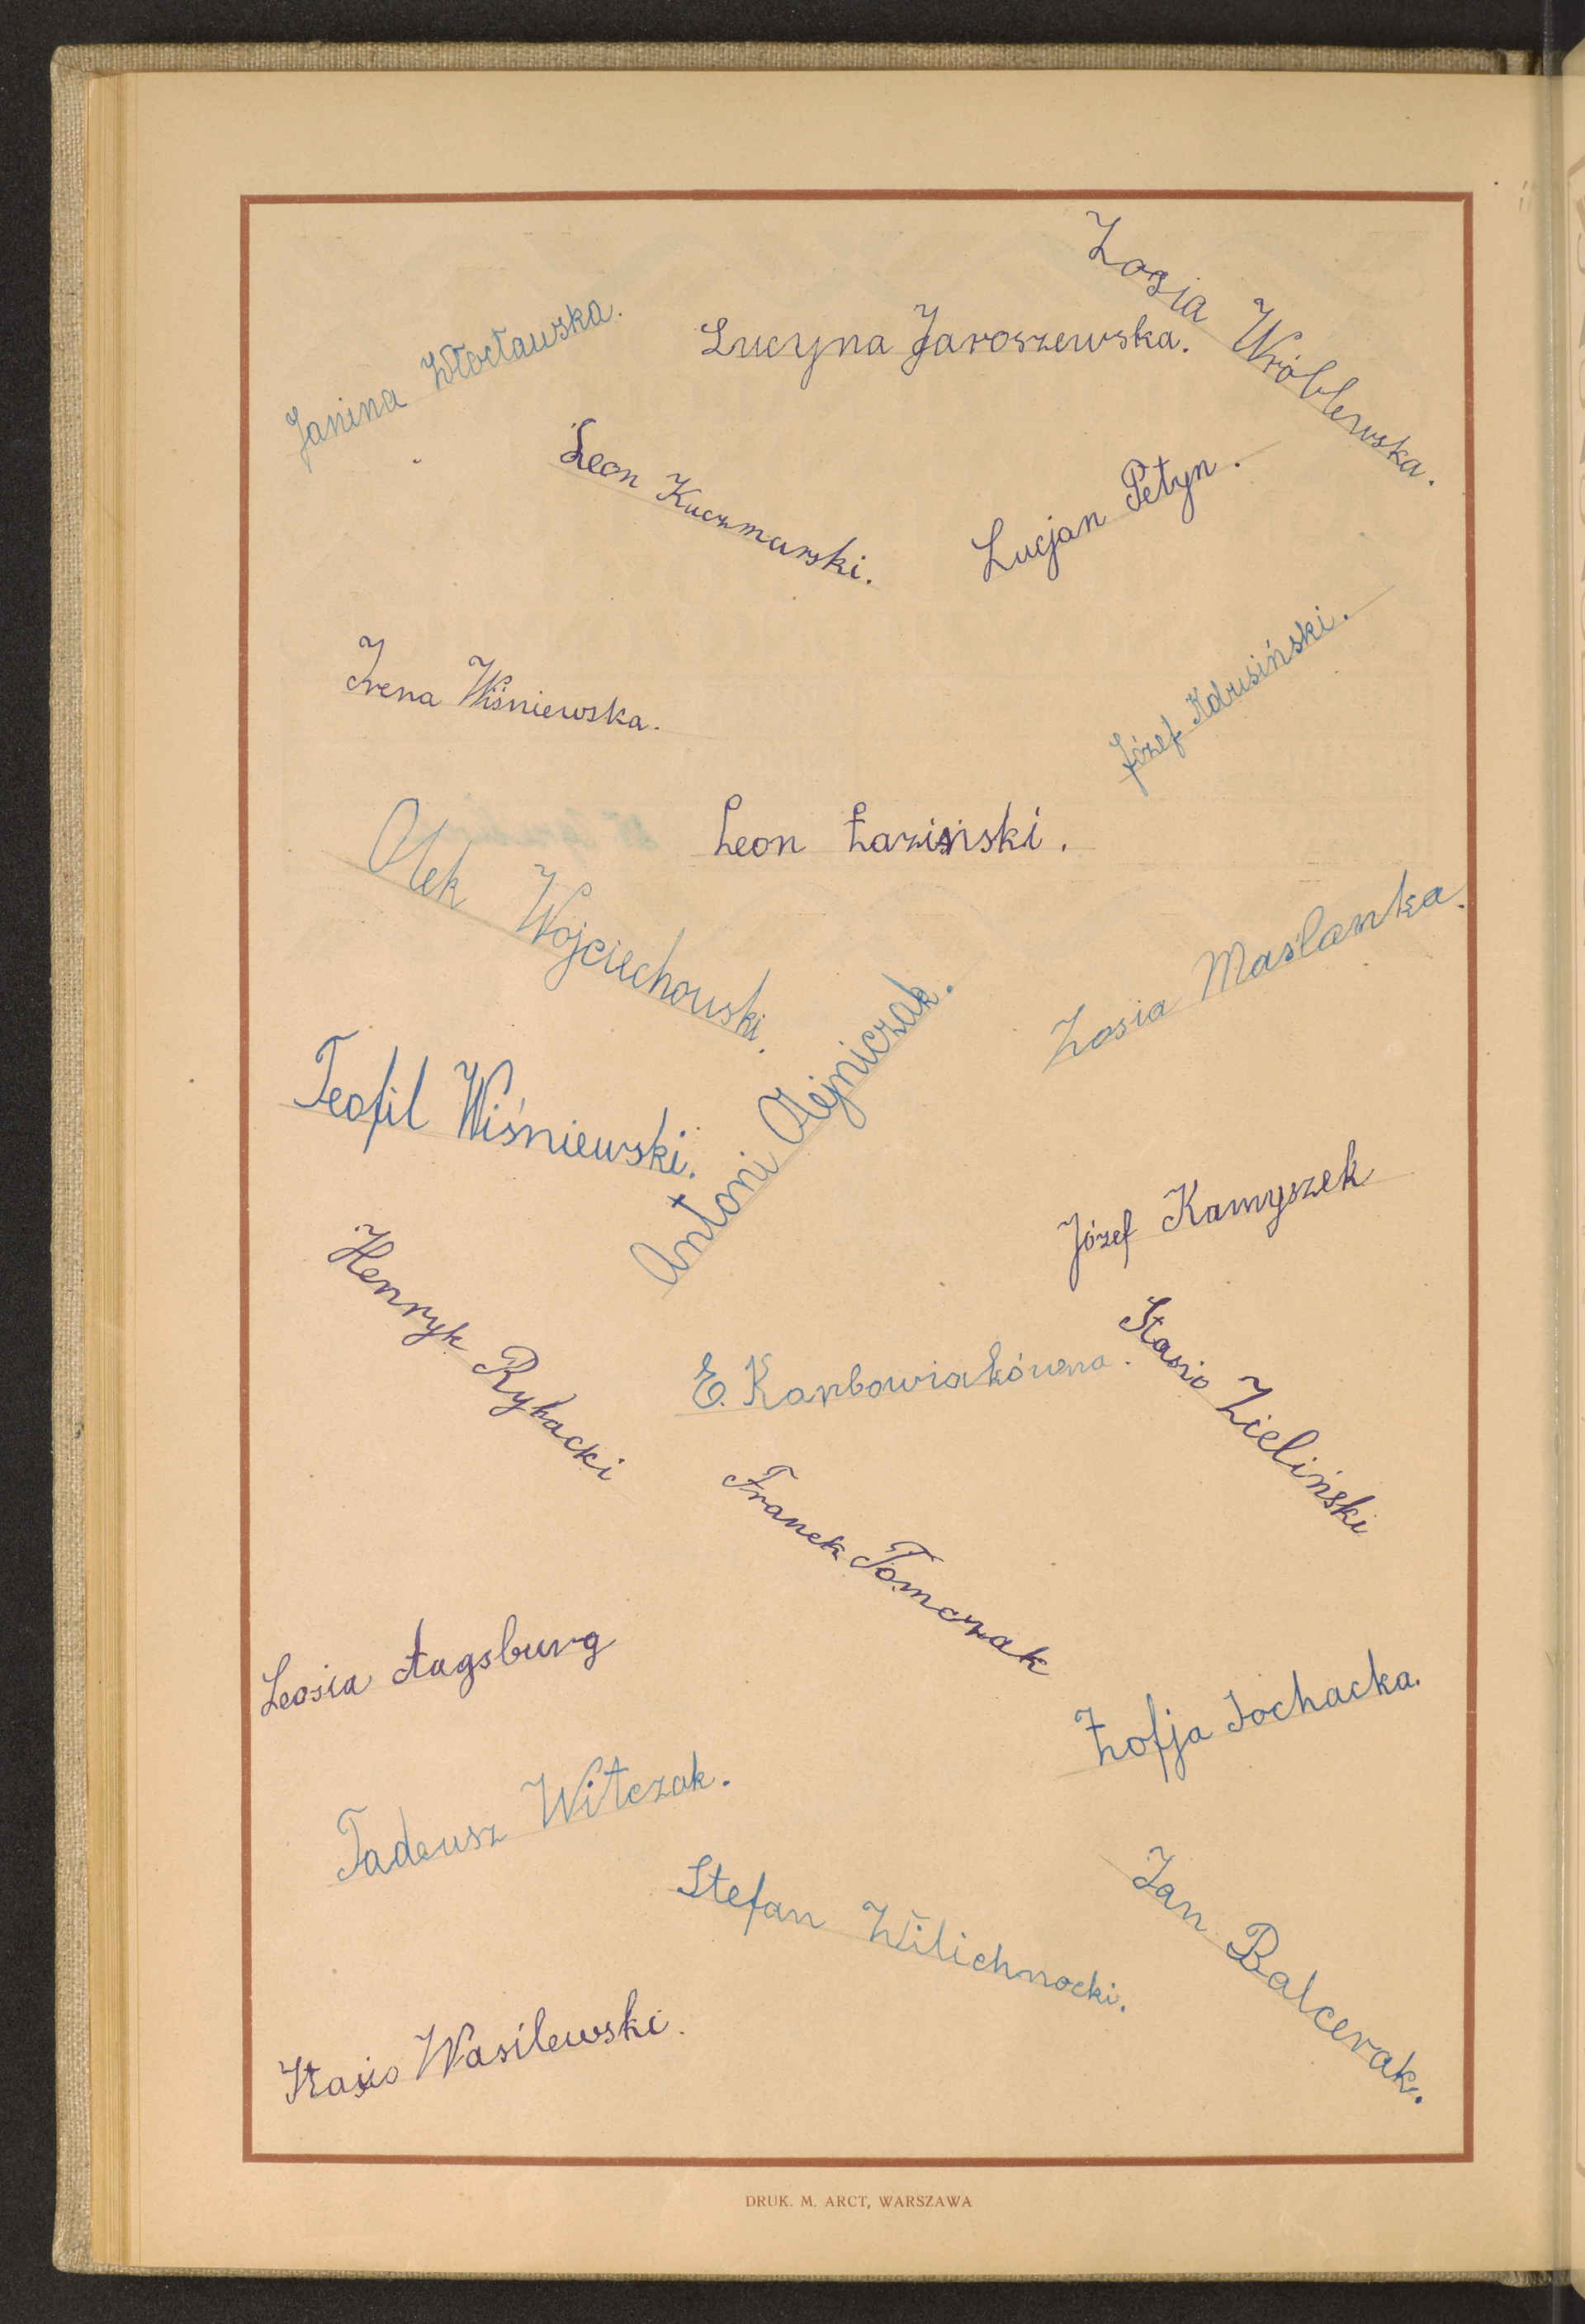 Zosia Wróblewska.
Janina Włocławska.
Lucyna Jaroszewska.
Leon Kuczmarski.
Lucjan Petyn.
Irena Wiśniewska.
Józef Kdrusiński.
Olek Wojciechowski.
Leon Łaziński.
Zosia Maślanka.
Antoni Olejniczak.
Teofil Wiśniewski.
Józef Kamyszek
Henryk Rybacki
E. Karbowiakówna.
Stasio Zieliński
Franek Tomczak
Leosia Augsburg
Zofja Sochacka.
Tadeusz Witczak.
Stefan Wilichnocki.
Jan Balcerak.
Stasio Wasilewski.
DRUK. M. ARCT, WARSZAWA